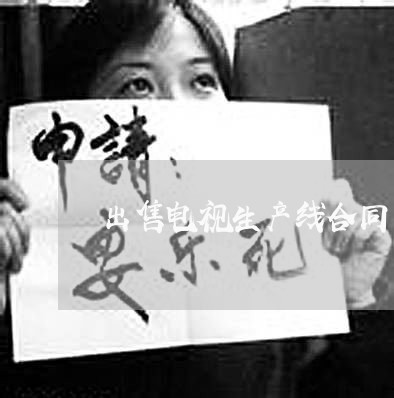 申請：
出售电视生产线合同
安乐死